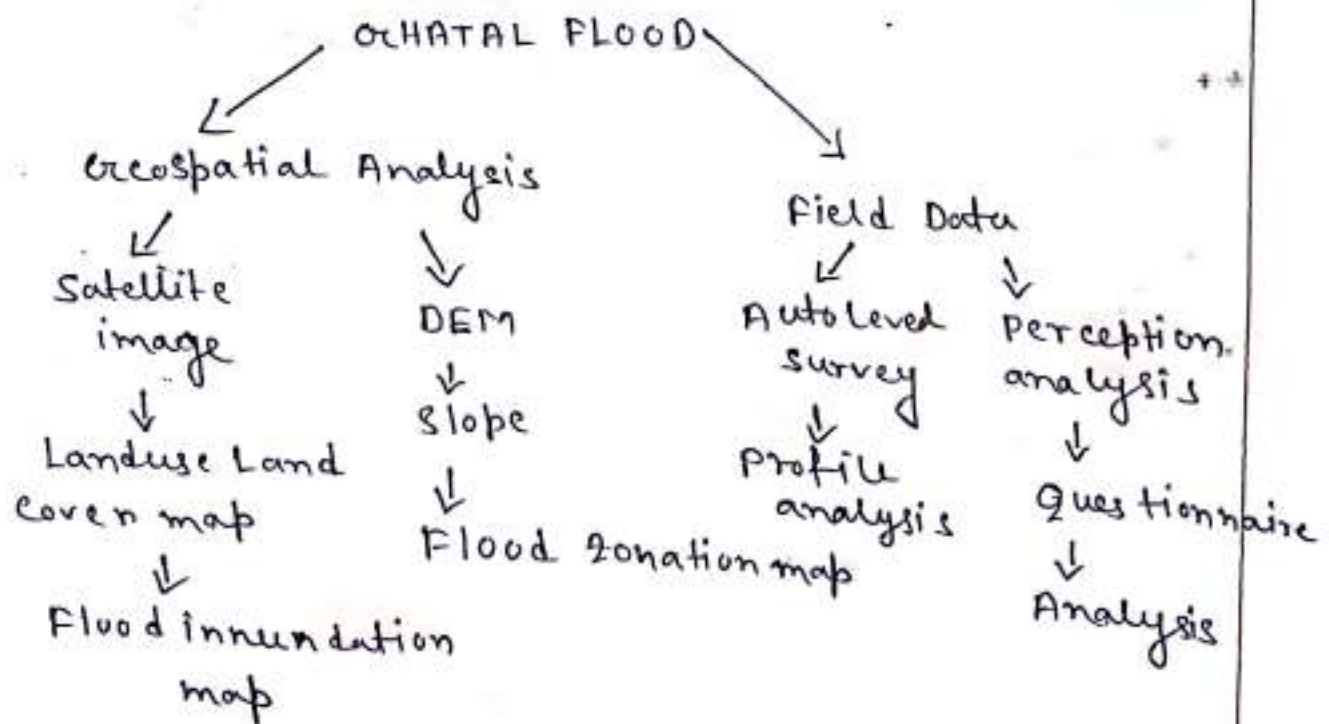 GHATAL FLOOD
Geospatial Analysis
Satellite
image
Landuse Land
cover map
Flood innundation
map
DEM
Slope
Flood zonation map
Field Data
Autolevel
survey
Profile
analysis
Perception
analysis
Questionnaire
Analysis